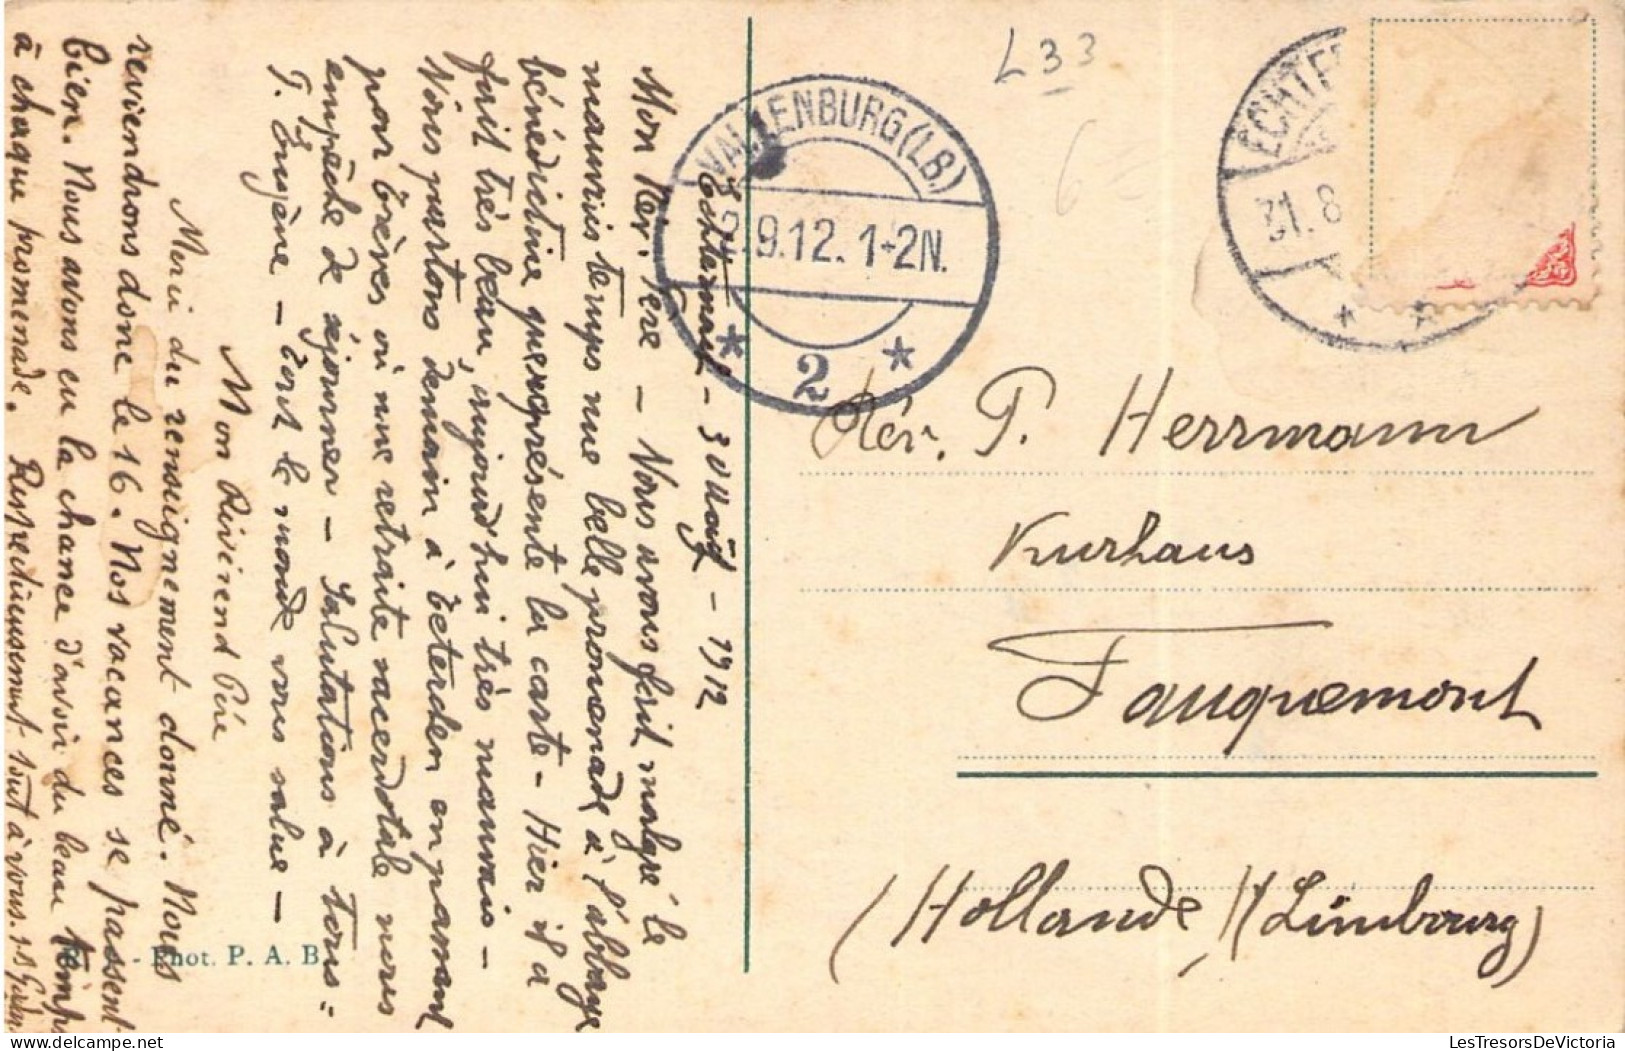 Echternach - 30 août - 1912
Mon Rév. Père - Nous avons fait malgré le
mauvais temps une belle promenade à l'abbaye
bénédictine que représente la carte - Hier il a
fait très beau, aujourd'hui très mauvais -
Nous partons demain à en passant
par Trèves où une retraite sacerdotale nous
empêche de séjourner - Salutations à tous =
P. Eugène - Tout le monde vous salue -
Mon Révérend Père
Merci du renseignement donné. Nous
reviendrons donc le 16. Nos vacances se passent
bien. Nous avons eu la chance d'avoir du beau temps
à chaque promenade. Respectueusement tout à vous.
Phot. P. A. B.
VALKENBURG (LB.)
2.9.12. 1-2N.
2
L33
6
ECHTE
31.8
Rév. P. Herrmann
Kurhaus
Fauquemont
(Hollande) (Limbourg)
LesTresorsDeVictoria.com